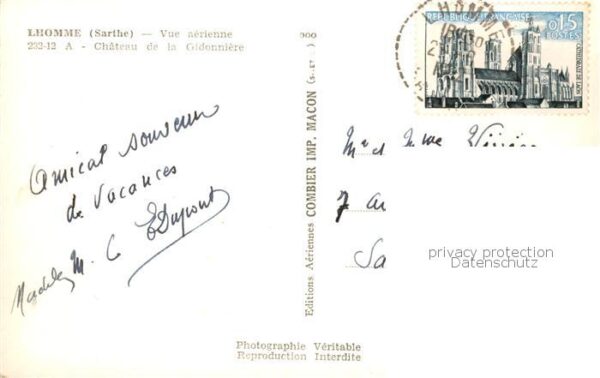 LHOMME (Sarthe) - Vue aérienne
232-12 A - Château de la Gidonnière
Amical souvenir
de vacances
M. C EDupont
Editions Aériennes COMBIER IMP. MACON
Photographie Véritable
Reproduction Interdite
REPUBLIQUE FRANÇAISE
0,15
POSTES
CATHEDRALE DE LAON
LHOMME
Mr et Mme
7
Sa
privacy protection
Datenschutz